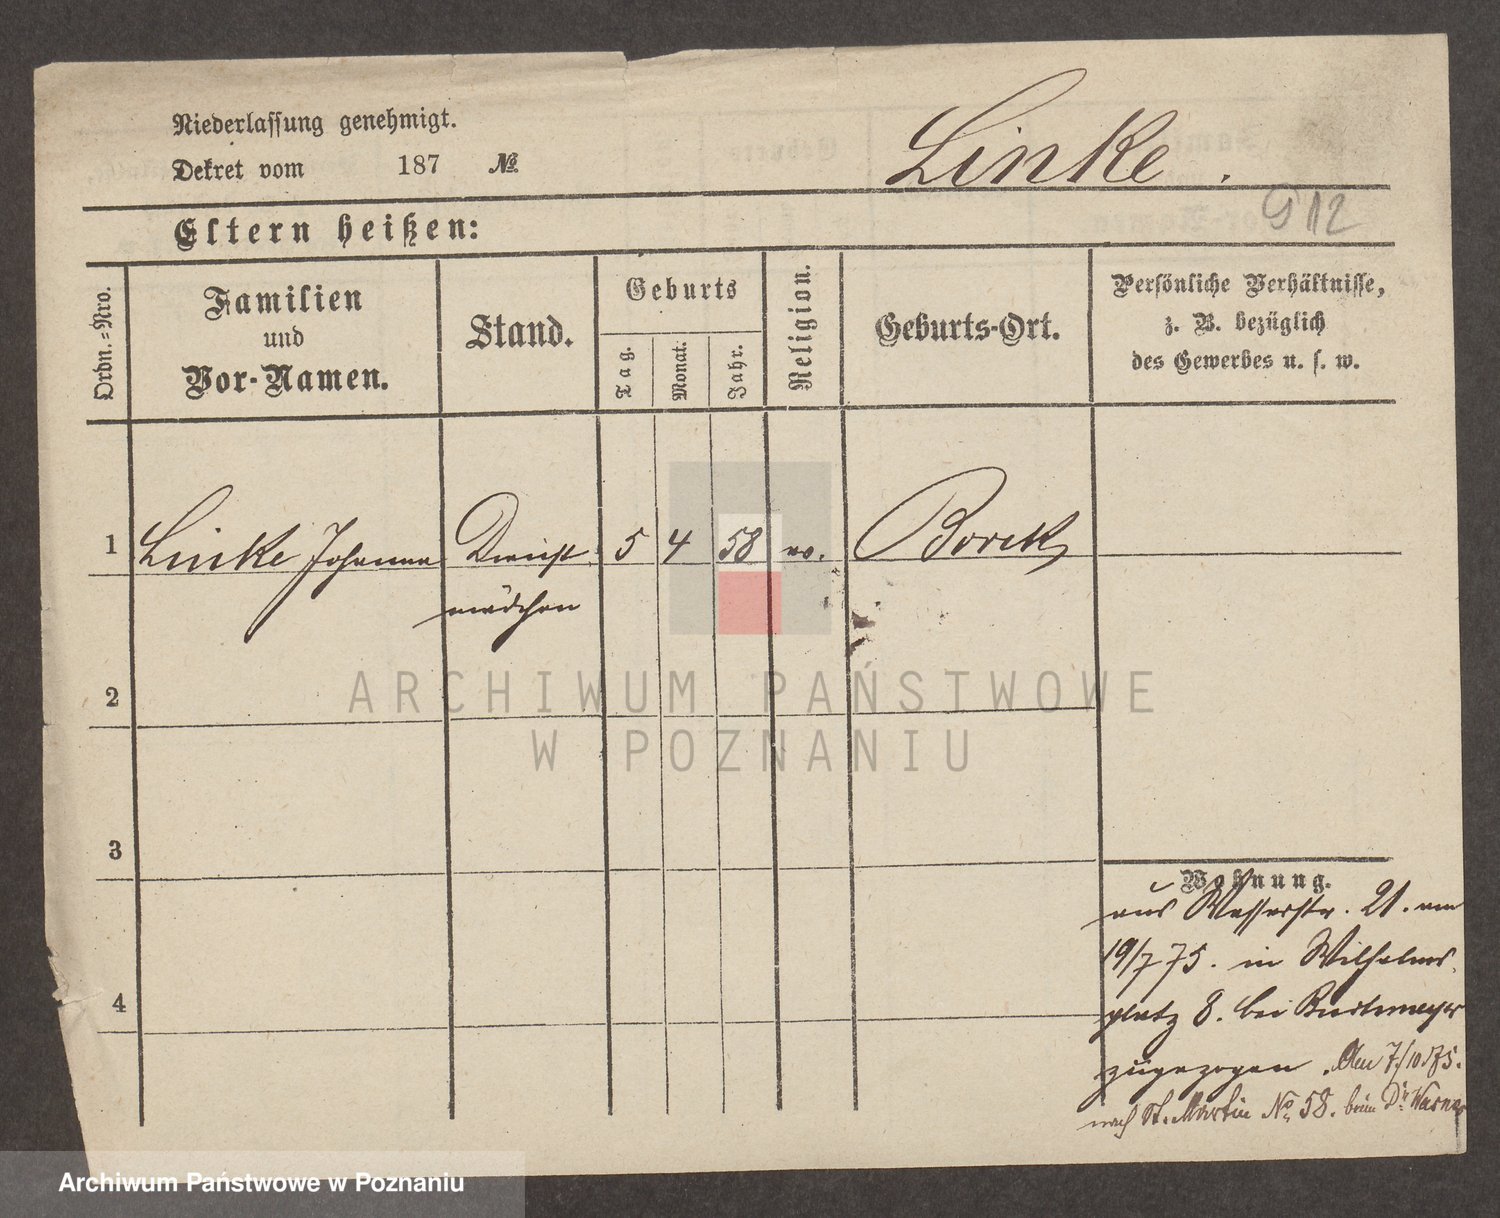 Niederlassung genehmigt.
Dekret vom 187 №
Linke.
Eltern heißen:
912
Ordn.=Nro.
Familien
und
Vor-Namen.
Stand.
Geburts
Tag.
Monat.
Jahr.
Religion.
Geburts-Ort.
Persönliche Verhältnisse,
z. B. bezüglich
des Gewerbes u. s. w.
1 Linke Johanna Dienst 5 4 58 ev. Borek
mädchen
2
ARCHIWUM PAŃSTWOWE
W POZNANIU
3
Wohnung.
aus Wasserstr. 21. am
19/7 75. in Wilhelms
4
platz 8. bei
zugezogen. Am 7/10 75.
nach St. Martin No 58. beim Dr
Archiwum Państwowe w Poznaniu